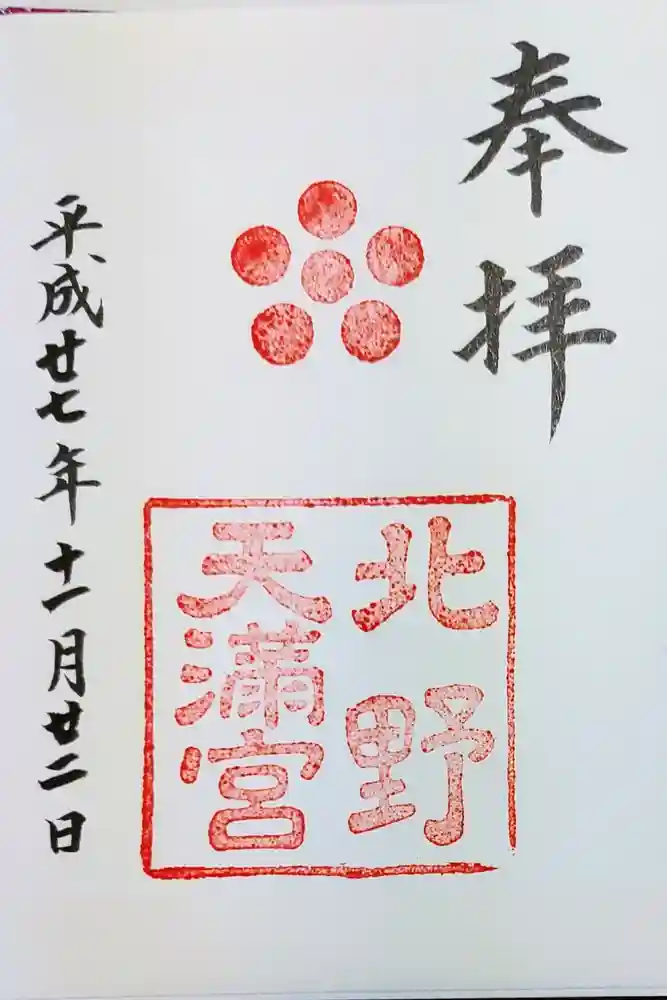 奉拝
北野
天滿宮
平成廿七年十一月廿二日